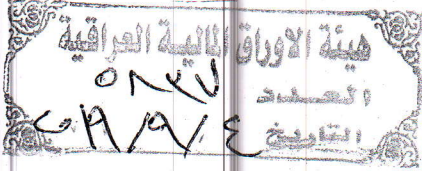 هيئة الاوراق المالية العراقية
العدد ٥٨٣٧
التاريخ ٢٠١٩/٩/٤